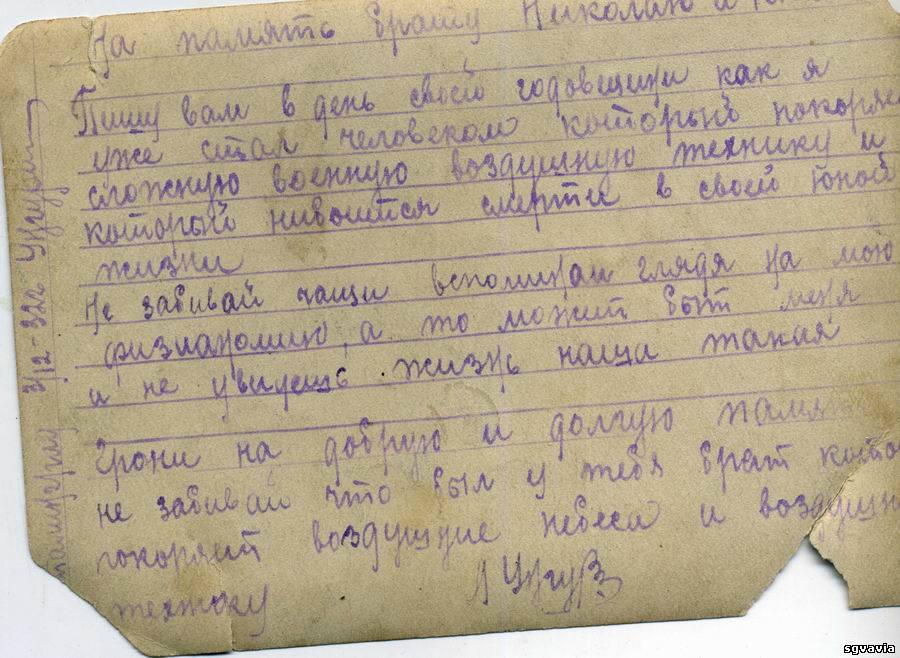 На память брату Николаю и
Пишу вам в день своей годовщини как я
уже стал человеком который покоряе
сложную военную воздушную технику и
который нибоится смерти в своей юной
жизни
Не забивай чащи вспоминай глядя на мою
физианомию, а то можит быт меня
и не увидешь жизнь наша такая
храни на добрую и долгую память
не забивай что был у тебя брат кото
покоряит воздушние небеса и воздушн
технику
3/12-32г
sgvavia